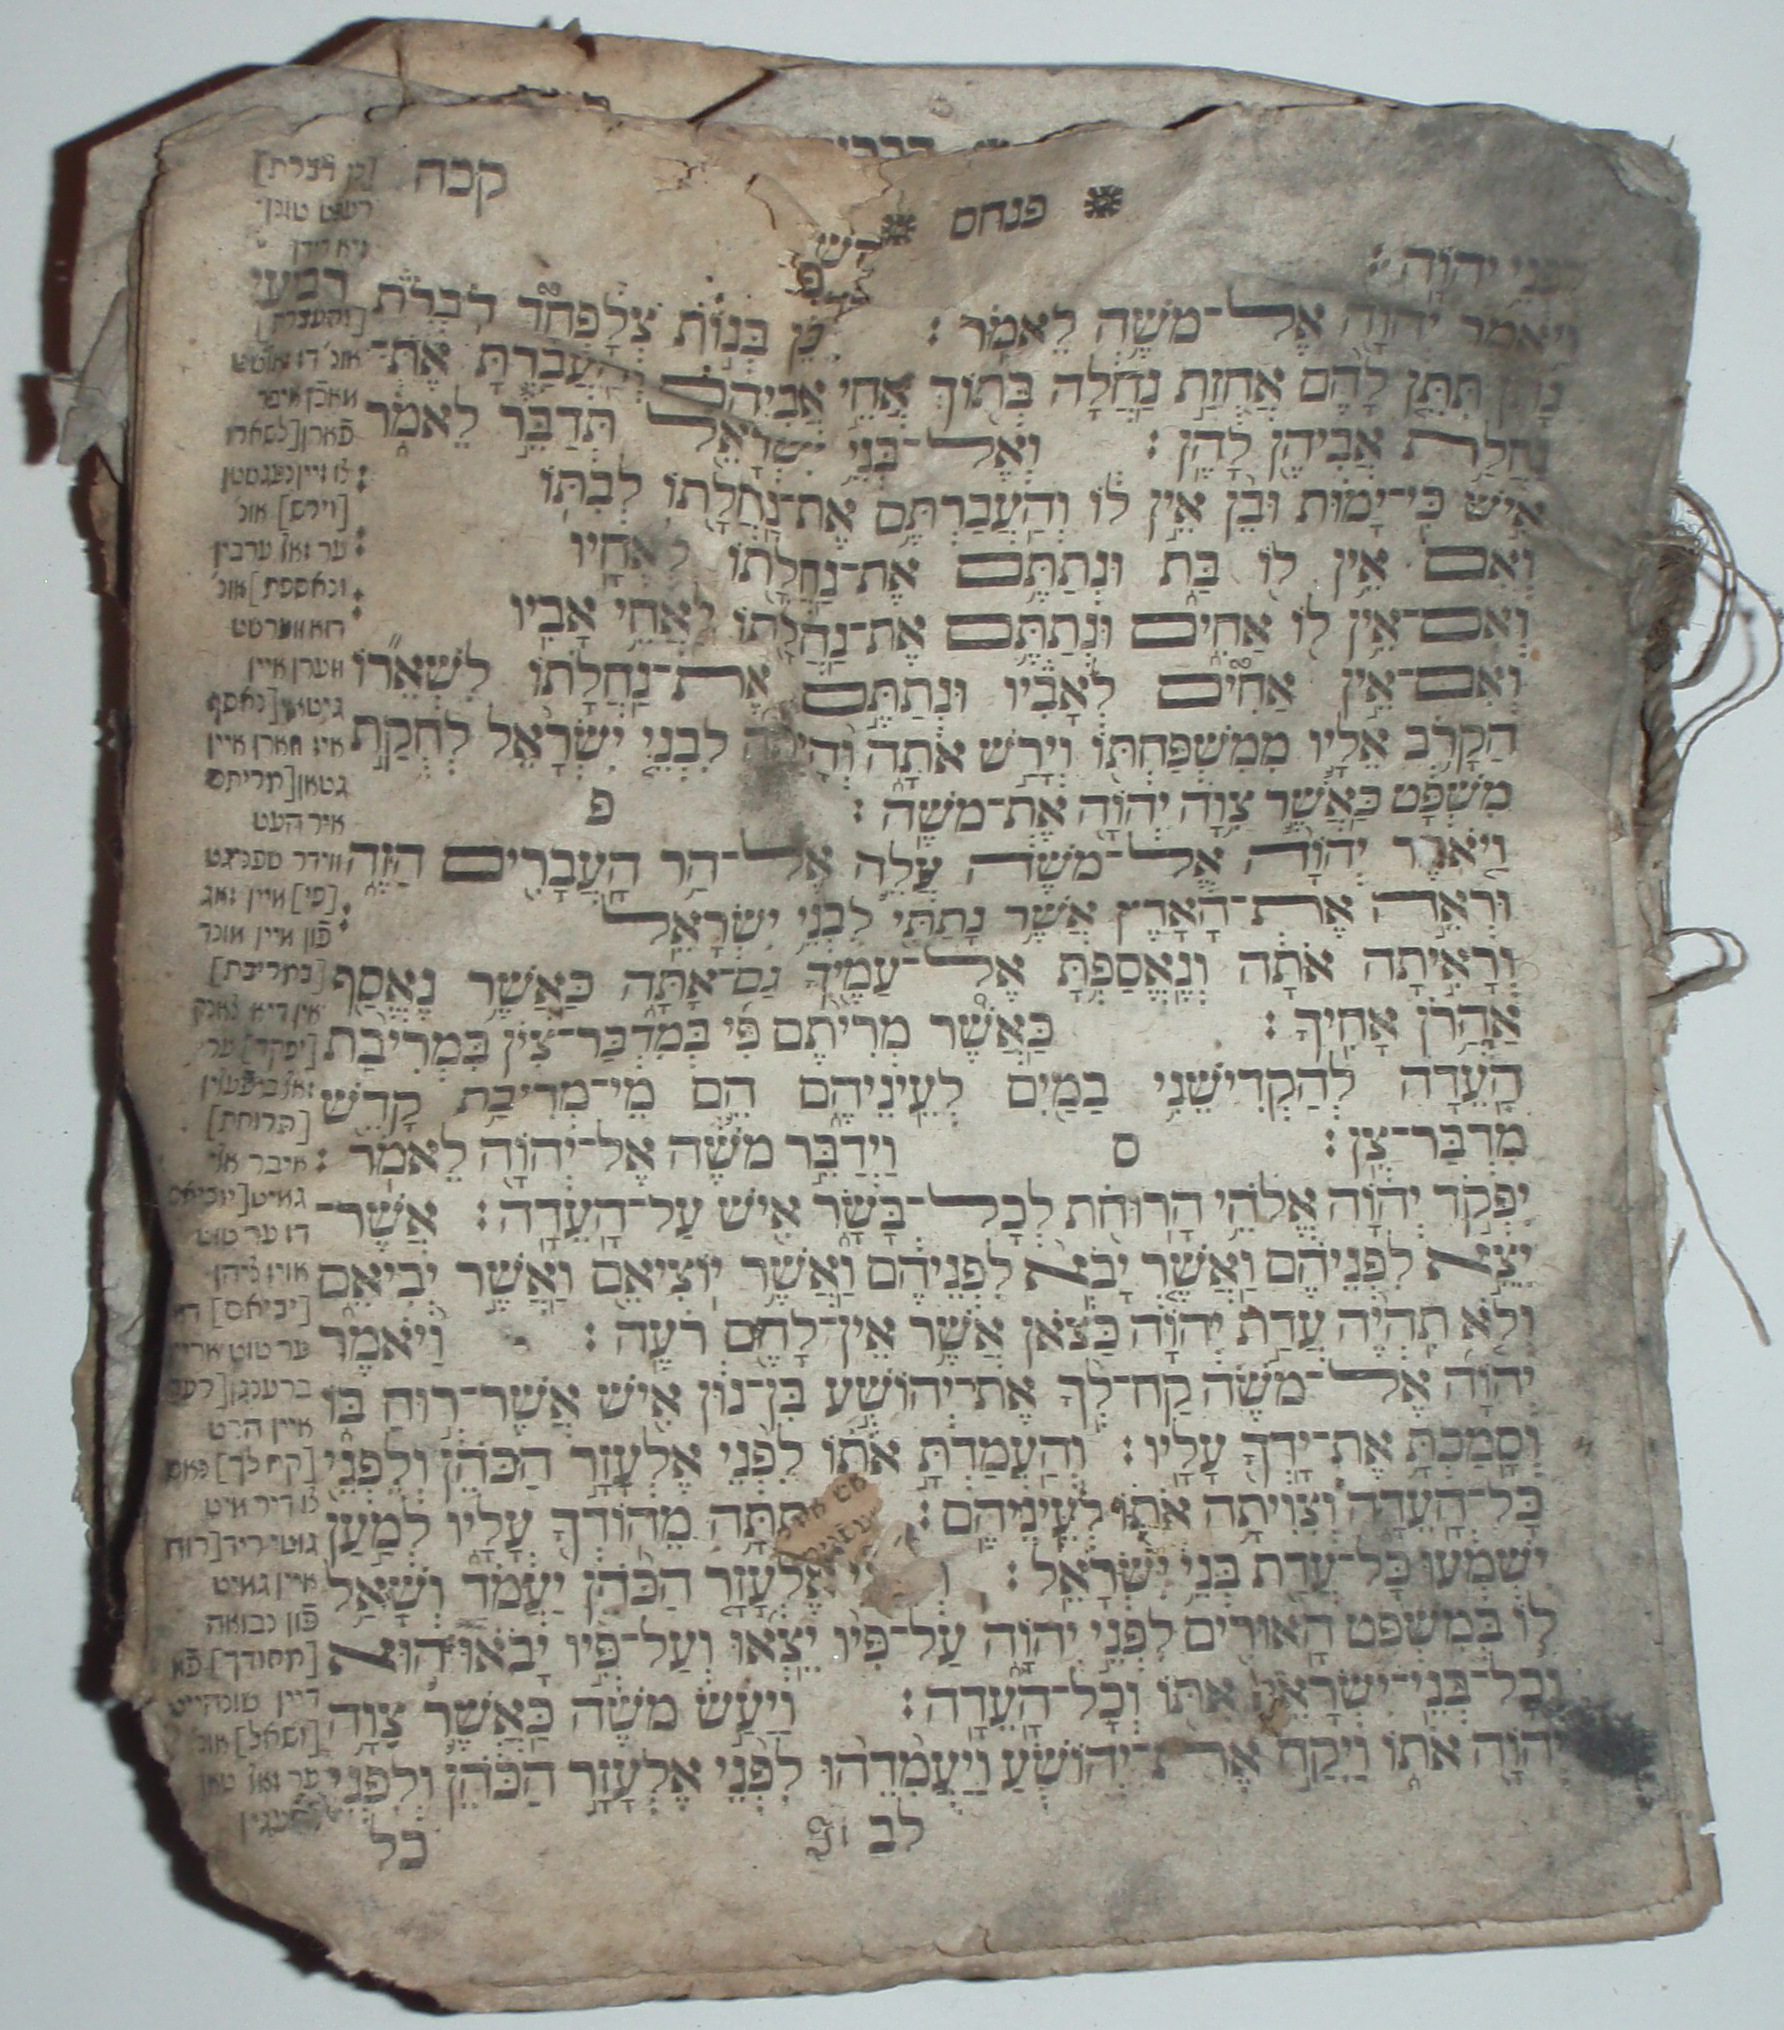 פנחס
קכה
לפני יְהוָֹה׃
וַיֹּאמֶר יְהוָֹה אֶל־מֹשֶׁה לֵּאמֹר׃ כֵּן בְּנוֹת צְלָפְחָד דֹּבְרֹת
נָתֹן תִּתֵּן לָהֶם אֲחֻזַּת נַחֲלָה בְּתוֹךְ אֲחֵי אֲבִיהֶם וְהַעֲבַרְתָּ אֶת־
נַחֲלַת אֲבִיהֶן לָהֶן׃ וְאֶל־בְּנֵי יִשְׂרָאֵל תְּדַבֵּר לֵאמֹר
אִישׁ כִּי־יָמוּת וּבֵן אֵין לוֹ וְהַעֲבַרְתֶּם אֶת־נַחֲלָתוֹ לְבִתּוֹ׃
וְאִם אֵין לוֹ בַּת וּנְתַתֶּם אֶת־נַחֲלָתוֹ לְאֶחָיו׃
וְאִם־אֵין לוֹ אַחִים וּנְתַתֶּם אֶת־נַחֲלָתוֹ לַאֲחֵי אָבִיו׃
וְאִם־אֵין אַחִים לְאָבִיו וּנְתַתֶּם אֶת־נַחֲלָתוֹ לִשְׁאֵרוֹ
הַקָּרֹב אֵלָיו מִמִּשְׁפַּחְתּוֹ וְיָרַשׁ אֹתָהּ וְהָיְתָה לִבְנֵי יִשְׂרָאֵל לְחֻקַּת
מִשְׁפָּט כַּאֲשֶׁר צִוָּה יְהוָֹה אֶת־מֹשֶׁה׃ פ
וַיֹּאמֶר יְהוָֹה אֶל־מֹשֶׁה עֲלֵה אֶל־הַר הָעֲבָרִים הַזֶּה
וּרְאֵה אֶת־הָאָרֶץ אֲשֶׁר נָתַתִּי לִבְנֵי יִשְׂרָאֵל׃
וְרָאִיתָה אֹתָהּ וְנֶאֱסַפְתָּ אֶל־עַמֶּיךָ גַּם־אָתָּה כַּאֲשֶׁר נֶאֱסַף
אַהֲרֹן אָחִיךָ׃ כַּאֲשֶׁר מְרִיתֶם פִּי בְּמִדְבַּר־צִן בִּמְרִיבַת
הָעֵדָה לְהַקְדִּישֵׁנִי בַמַּיִם לְעֵינֵיהֶם הֵם מֵי־מְרִיבַת קָדֵשׁ
מִדְבַּר־צִן׃ ס וַיְדַבֵּר מֹשֶׁה אֶל־יְהוָֹה לֵאמֹר׃
יִפְקֹד יְהוָֹה אֱלֹהֵי הָרוּחֹת לְכָל־בָּשָׂר אִישׁ עַל־הָעֵדָה׃ אֲשֶׁר־
יֵצֵא לִפְנֵיהֶם וַאֲשֶׁר יָבֹא לִפְנֵיהֶם וַאֲשֶׁר יוֹצִיאֵם וַאֲשֶׁר יְבִיאֵם
וְלֹא תִהְיֶה עֲדַת יְהוָֹה כַּצֹּאן אֲשֶׁר אֵין־לָהֶם רֹעֶה׃ וַיֹּאמֶר
יְהוָֹה אֶל־מֹשֶׁה קַח־לְךָ אֶת־יְהוֹשֻׁעַ בִּן־נוּן אִישׁ אֲשֶׁר־רוּחַ בּוֹ
וְסָמַכְתָּ אֶת־יָדְךָ עָלָיו׃ וְהַעֲמַדְתָּ אֹתוֹ לִפְנֵי אֶלְעָזָר הַכֹּהֵן וְלִפְנֵי
כָּל־הָעֵדָה וְצִוִּיתָה אֹתוֹ לְעֵינֵיהֶם׃ תַתָּה מֵהוֹדְךָ עָלָיו לְמַעַן
יִשְׁמְעוּ כָּל־עֲדַת בְּנֵי יִשְׂרָאֵל׃ אֶלְעָזָר הַכֹּהֵן יַעֲמֹד וְשָׁאַל
לוֹ בְּמִשְׁפַּט הָאוּרִים לִפְנֵי יְהוָֹה עַל־פִּיו יֵצְאוּ וְעַל־פִּיו יָבֹאוּ הוּא
וְכָל־בְּנֵי־יִשְׂרָאֵל אִתּוֹ וְכָל־הָעֵדָה׃ וַיַּעַשׂ מֹשֶׁה כַּאֲשֶׁר צִוָּה
יְהוָֹה אֹתוֹ וַיִּקַּח אֶת־יְהוֹשֻׁעַ וַיַּעֲמִדֵהוּ לִפְנֵי אֶלְעָזָר הַכֹּהֵן וְלִפְנֵי
לב
כל
[כן דברת]
[והעברת]
אונ׳
[וירש] אונ׳
ונאספת] אונ׳
ווערן איין
איר העט
[פי] איין זאג
פֿון איין מונד
[במריבת]
[יפקד] ער
[הרוחת]
איבר אל
דו ער טוט
[יביאם]
[קח לך]
צו דיר איט
איין גאיט
פֿון נבואה
[מהודך] פֿא
דיין שונהייט
[ושאל] אונ׳